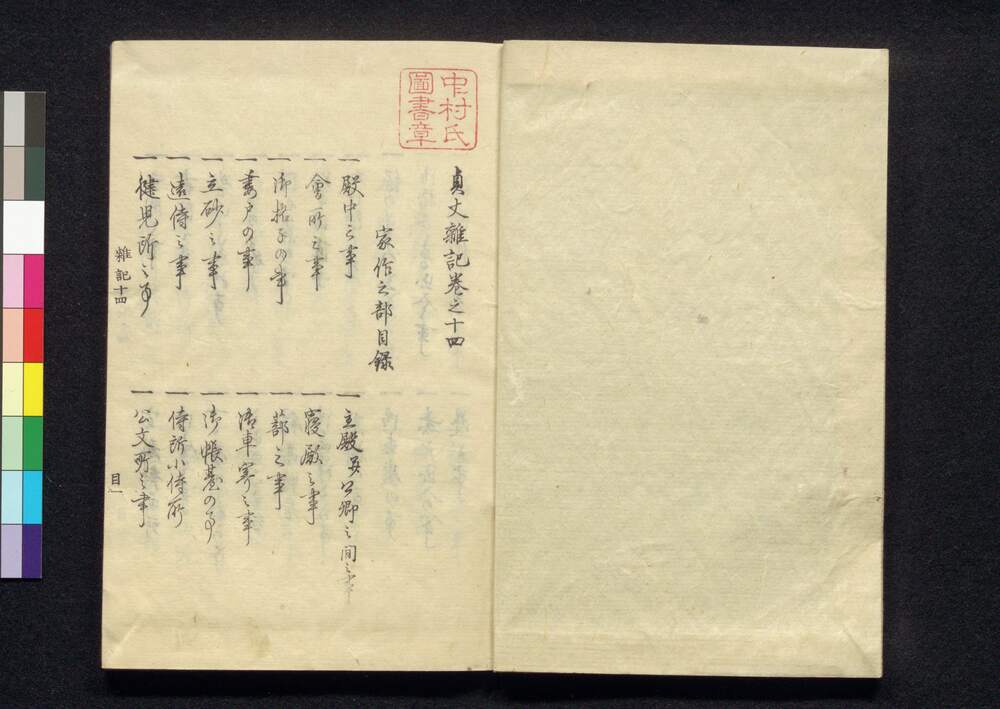 中村氏
圖書章
貞丈雜記巻之十四
家作之部目録
一 殿中之事
一 主殿并公卿之間之事
一 會所之事
一 寝殿之事
一 御格子の事
一 蔀之事
一 妻戸の事
一 御車寄之事
一 立砂之事
一 御帳臺の事
一 遠侍之事
一 侍所小侍所
一 健児所之事
一 公文所之事
雜記十四
目一